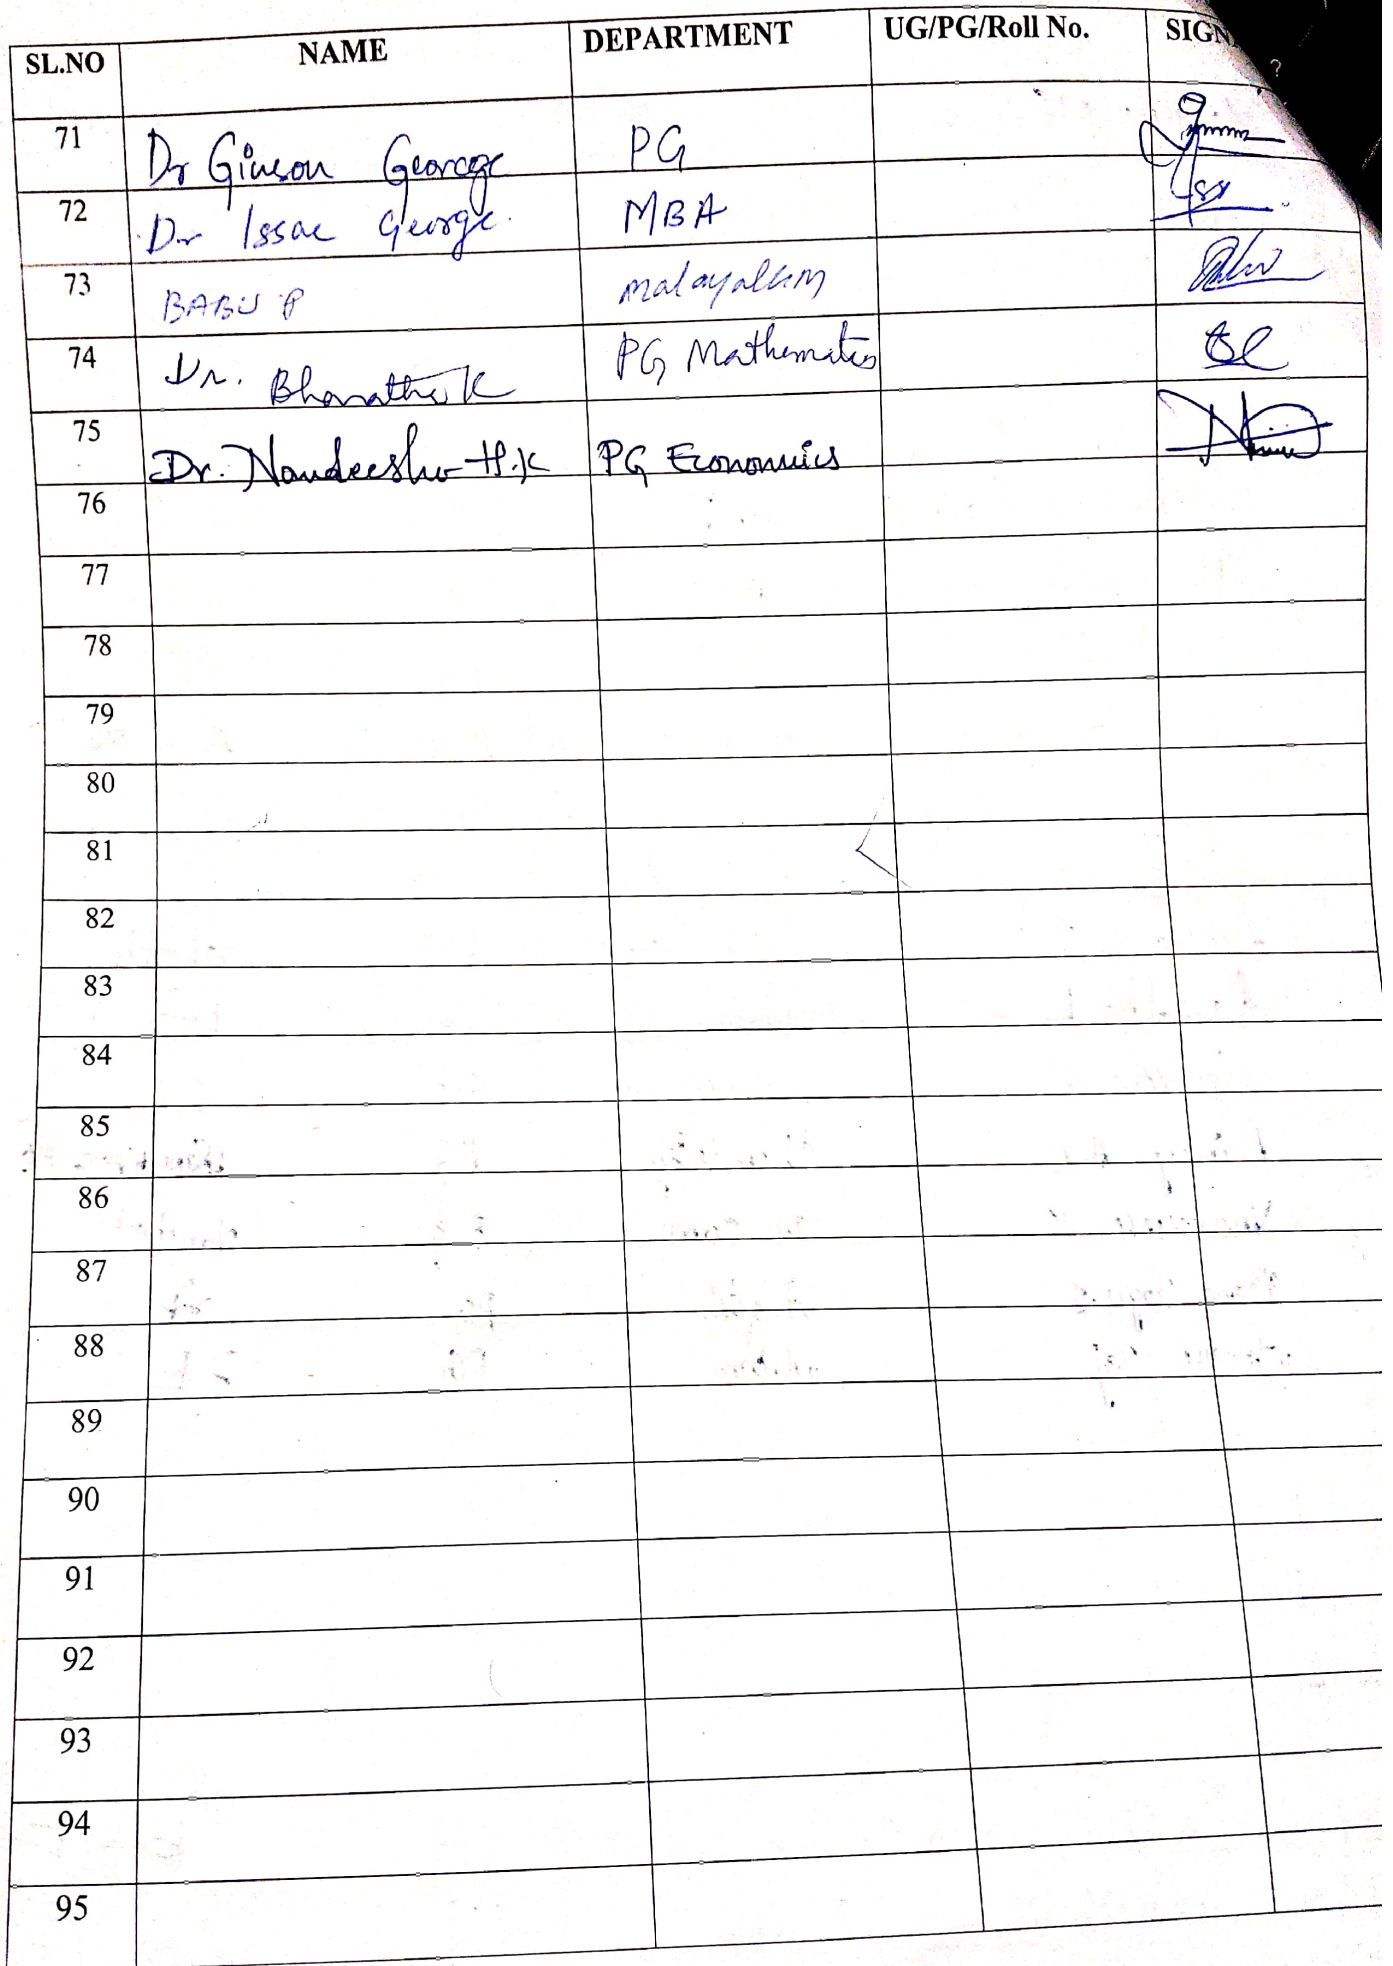 SL.NO NAME DEPARTMENT UG/PG/Roll No. SIGN
71 Dr Ginson George PG
72 Dr Issac George MBA
73 BABU P malayalam
74 Dr. Bharathi K PG Mathematics
75 Dr. Nandeesha H.K PG Economics
76
77
78
79
80
81
82
83
84
85
86
87
88
89
90
91
92
93
94
95